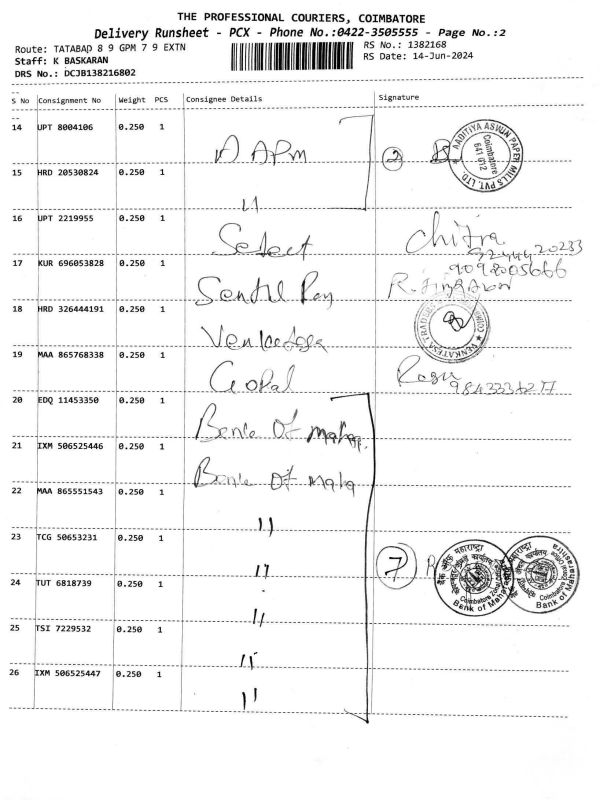 THE PROFESSIONAL COURIERS, COIMBATORE
Delivery Runsheet - PCX - Phone No.:0422-3505555 - Page No.:2
Route: TATABAD 8 9 GPM 7 9 EXTN
RS No.: 1382168
Staff: K BASKARAN
RS Date: 14-Jun-2024
DRS No.: DCJB138216802
S No Consignment No Weight PCS Consignee Details Signature
14 UPT 8004106 0.250 1 A APM 2
AADITIYA ASWIN PAPER MILLS PVT. LTD. Coimbatore 641 012
15 HRD 20530824 0.250 1 11
16 UPT 2219955 0.250 1 Select Chitra
9244420233
17 KUR 696053828 0.250 1 Senthil Ray R.
9098005666
18 HRD 326444191 0.250 1 Venkatesa
VENKATESA TRADERS
19 MAA 865768338 0.250 1 Gopal Rasu
20 EDQ 11453350 0.250 1 Bank Of Maha
21 IXM 506525446 0.250 1 Bank Of Maha
22 MAA 865551543 0.250 1 11
23 TCG 50653231 0.250 1 11 7 R
बैंक ऑफ महाराष्ट्र Coimbatore Bank of Maharashtra
Coimbatore Bank of Maharashtra
24 TUT 6818739 0.250 1 11
25 TSI 7229532 0.250 1 11
26 IXM 506525447 0.250 1 11